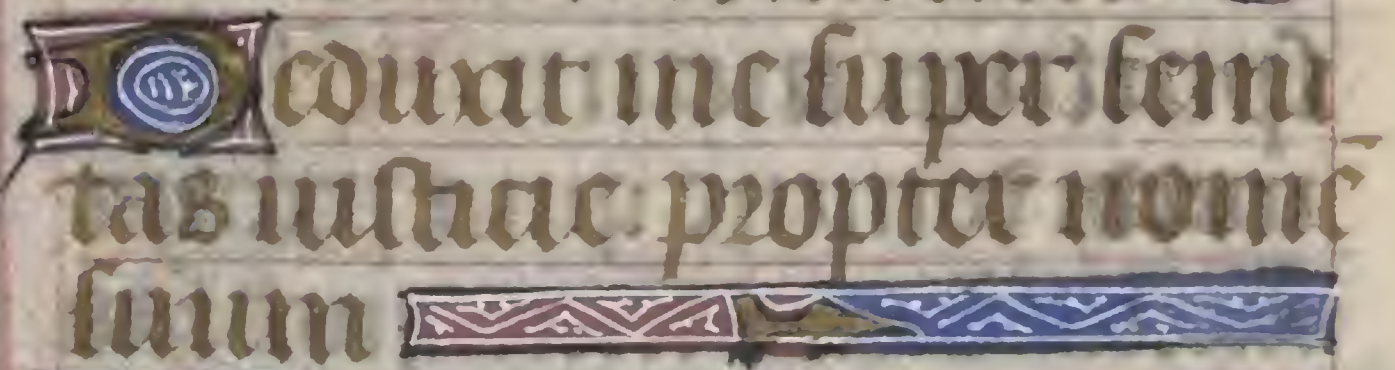 Deduxit me super semi
tas iusticie: propter nomē
suum